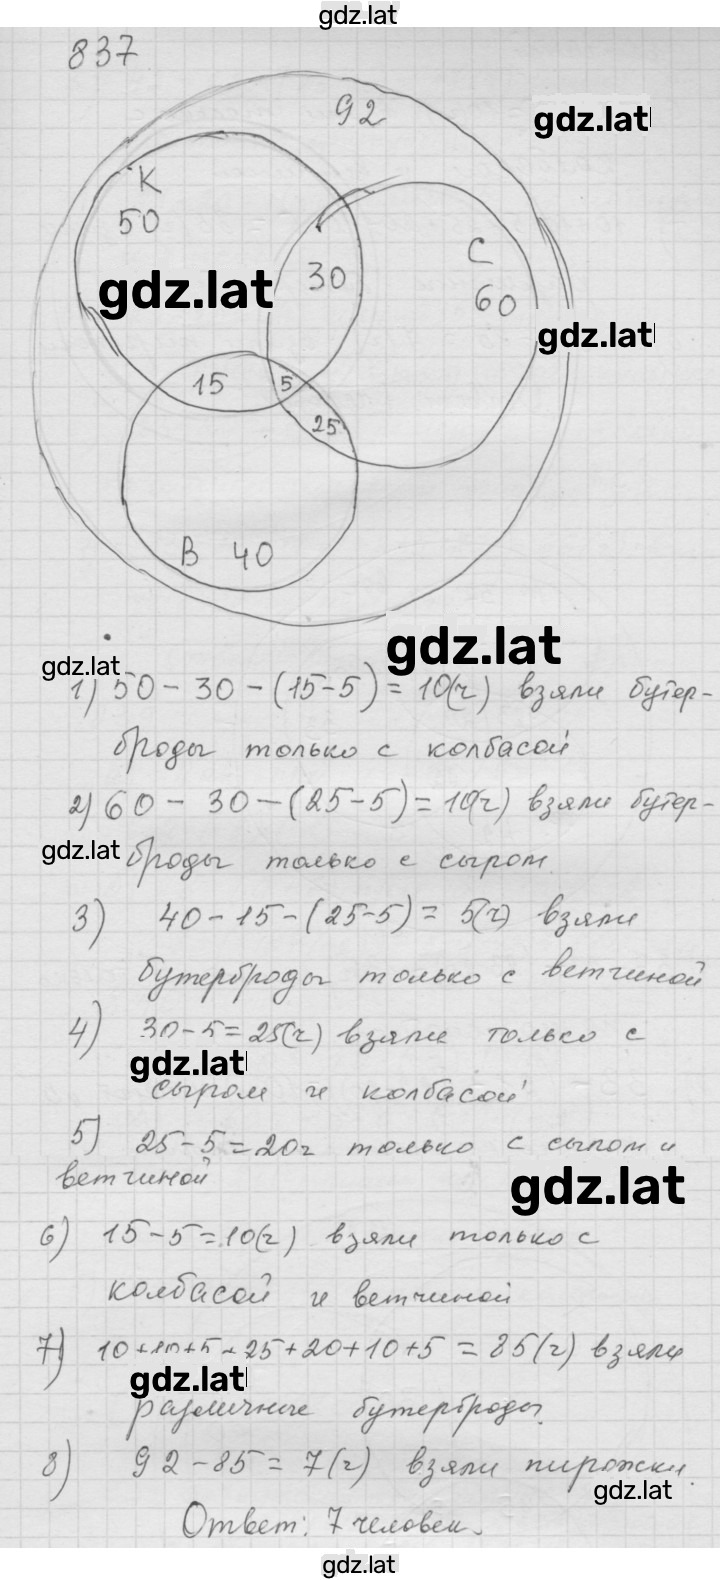 gdz.lat
837
92
gdz.lat
К
50
С
60
30
gdz.lat
gdz.lat
15
5
25
В 40
gdz.lat
gdz.lat
1) 50 - 30 - (15-5) = 10(ч) взяли бутер-
броды только с колбасой
2) 60 - 30 - (25-5) = 10(ч) взяли бутер-
gdz.lat
броды только с сыром
3) 40 - 15 - (25-5) = 5(ч) взяли
бутерброды только с ветчиной
4) 30-5=25(ч) взяли только с
gdz.lat
сыром и колбасой
5) 25-5=20ч только с сыром и
ветчиной
gdz.lat
6) 15-5=10(ч) взяли только с
колбасой и ветчиной
7) 10+10+5+25+20+10+5 = 85(ч) взяли
gdz.lat
различные бутерброды.
8) 92-85=7(ч) взяли пирожки.
gdz.lat
Ответ: 7 человек.
gdz.lat